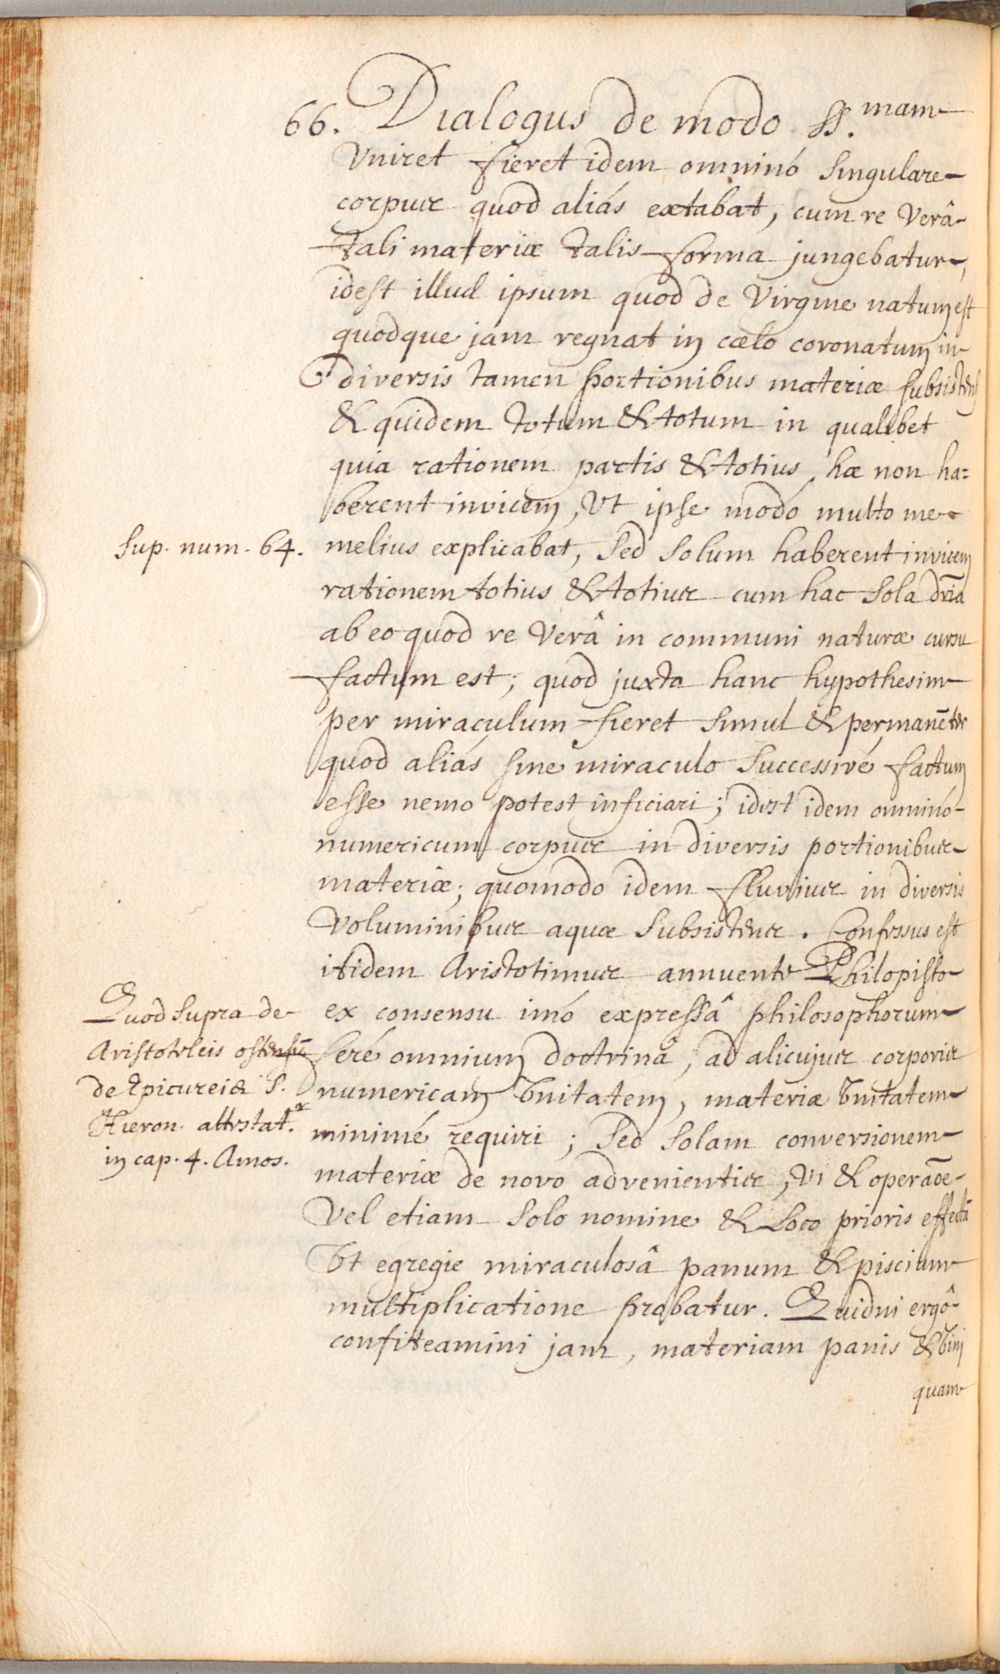 66. Dialogus de modo SS.mam
Uniret fieret idem omninó singulare
corpus quod aliás extabat, cum re Verâ
tali materiæ talis forma jungebatur,
idest illud ipsum quod de Virgine natum est
quodque jam regnat in cælo coronatum in
diversis tamen portionibus materiæ subsistens
& quidem totum & totum in qualibet
quia rationem partis & totius, hæ non ha=
berent invicem, Ut ipse modó multo me
Sup. num. 64. melius explicabat, sed solum haberent invicem
rationem totius & totius cum hac sola dr̃ia
ab eo quod re Verâ in communi naturæ cursu
factum est; quod juxta hanc hypothesim
per miraculum fieret simul & permanẽter
quod aliás sine miraculo successivé factum
esse nemo potest inficiari; idest idem omninó
numericum corpus in diversis portionibus
materiæ; quomodo idem fluvius in diversis
Voluminibus aquæ subsistens. Confessus est
itidem Aristotimus annuente Philopisto
Quod supra de
Aristoteleis ostensũ
de Epicureis S.
Hieron. attestatr
in cap. 4. Amos.
ex consensu imó expressâ philosophorum
feré omnium doctrinâ, ad alicujus corporis
numericam Unitatem, materiæ Unitatem
minimé requiri; sed solam conversionem
materiæ de novo advenientis, Vi & operaõe
Vel etiam solo nomine & loco prioris effectâ
Ut egregie miraculosâ panum & piscium
multiplicatione probatur. Quidni ergô
confiteamini jam, materiam panis & Vini
quam